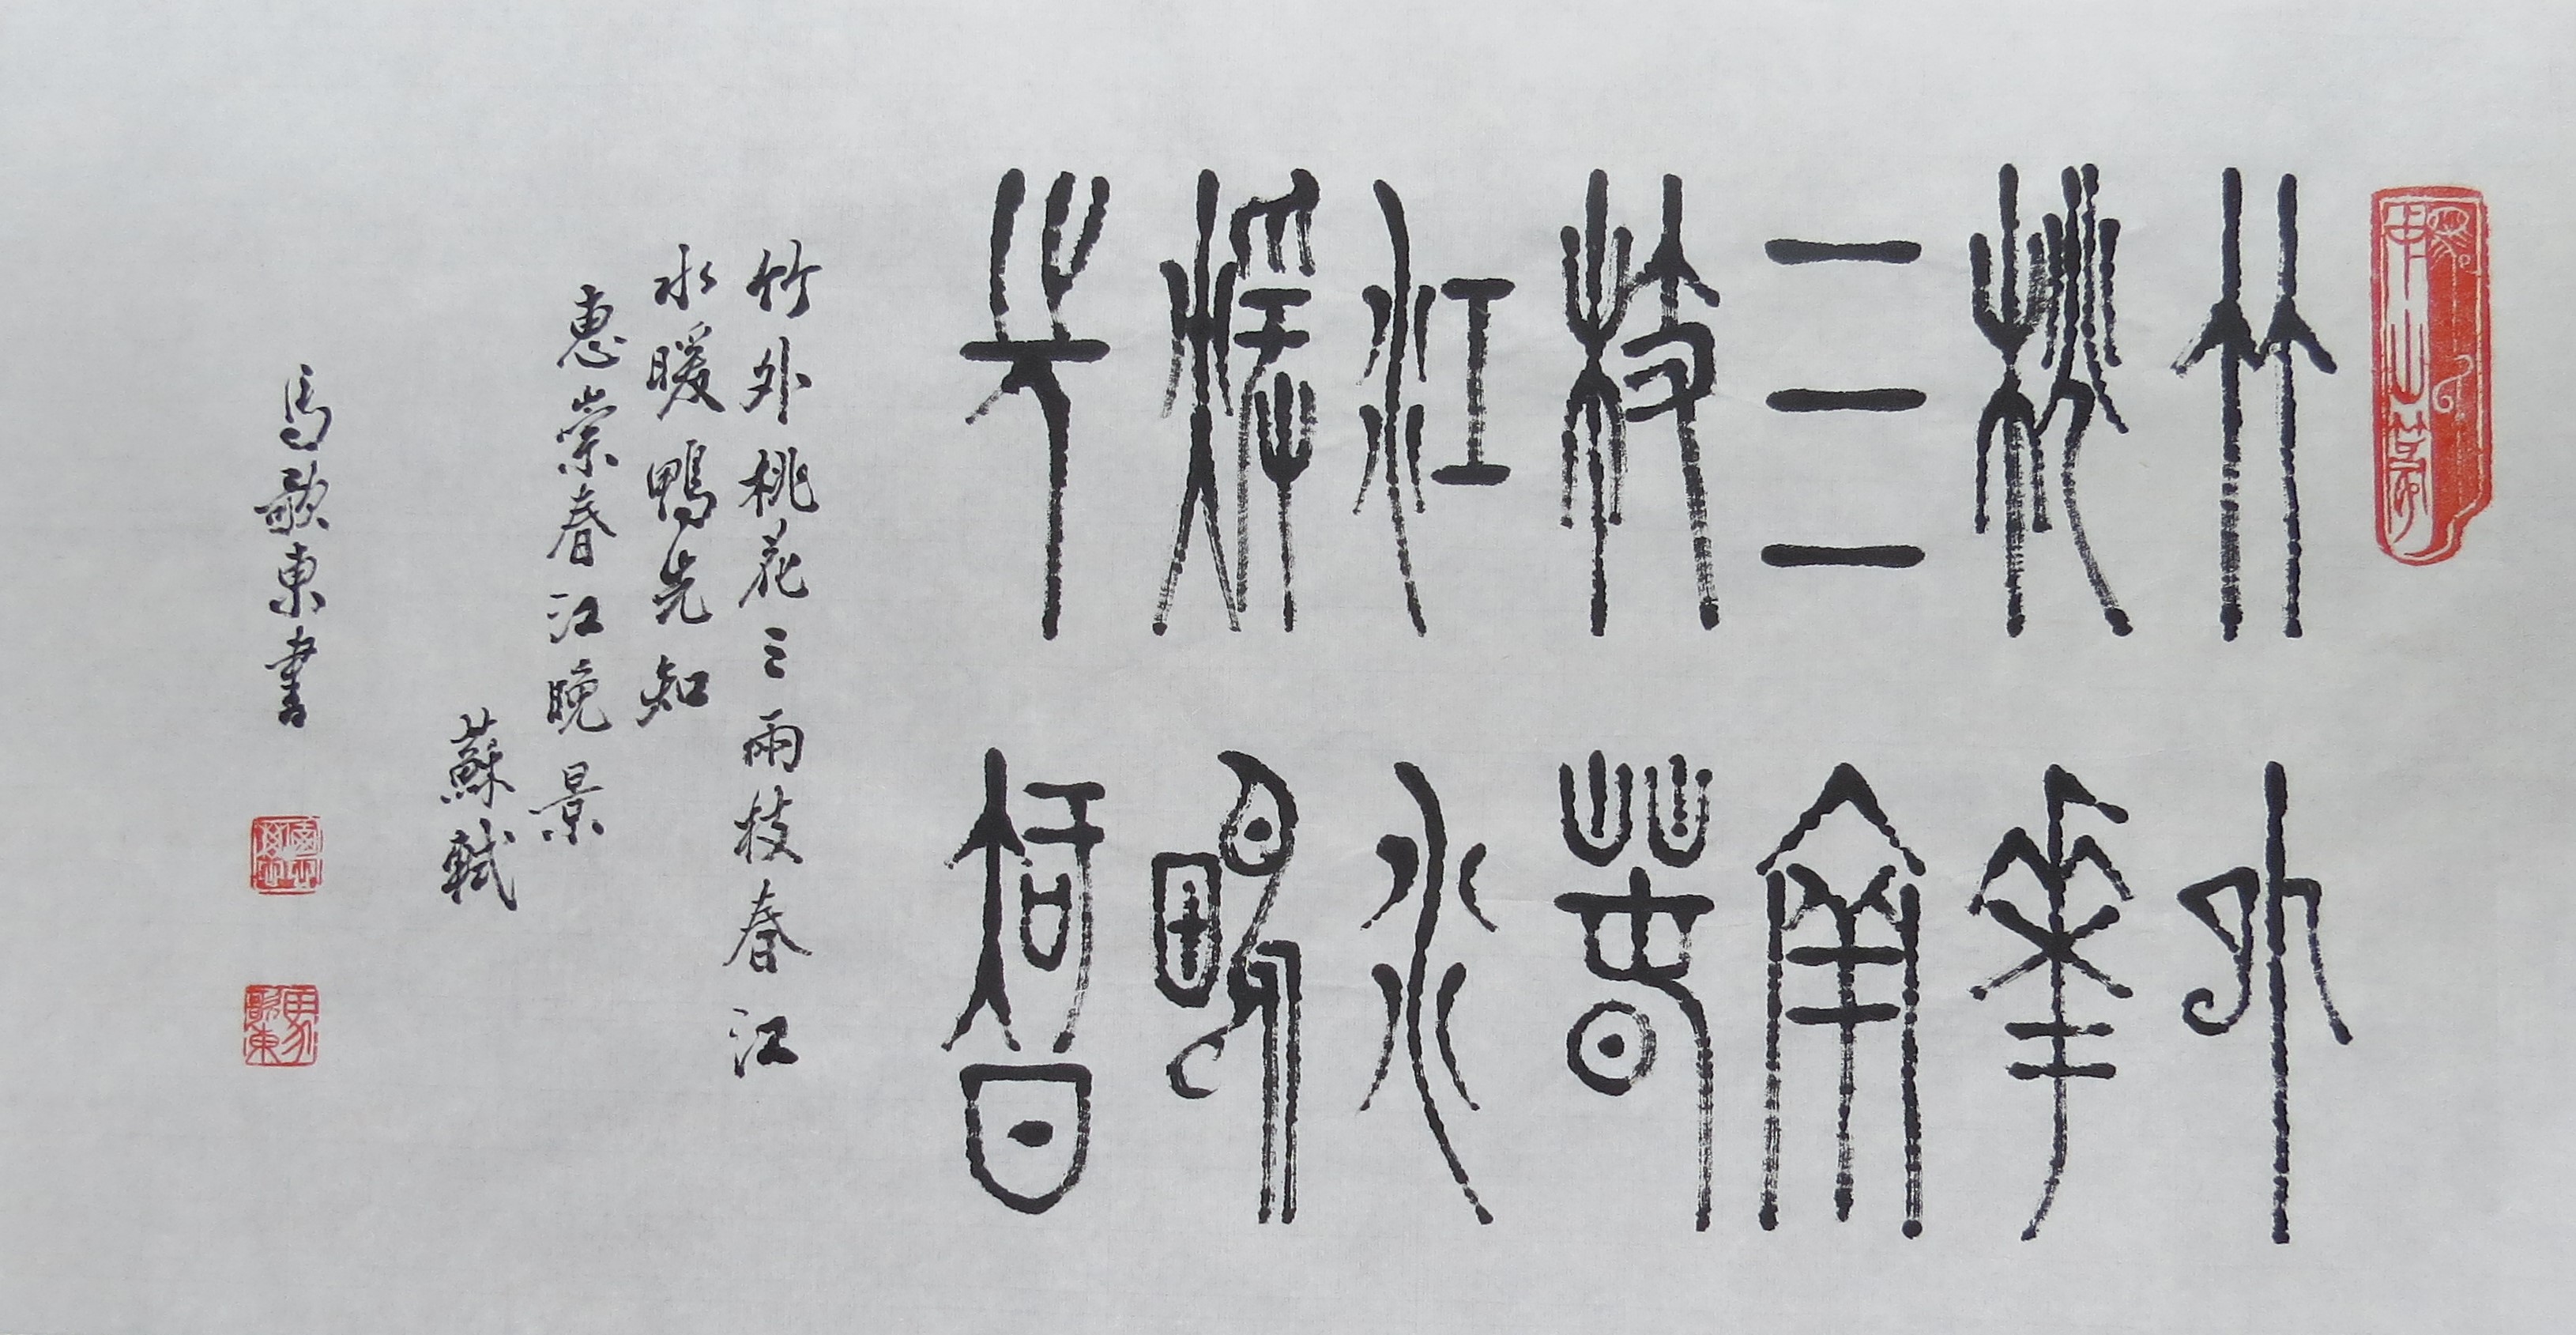 竹外
桃華
三兩
枝春
江水
煖鴨
先知
竹外桃花三兩枝春江
水暖鴨先知
惠崇春江晚景
蘇軾
馬歌東書